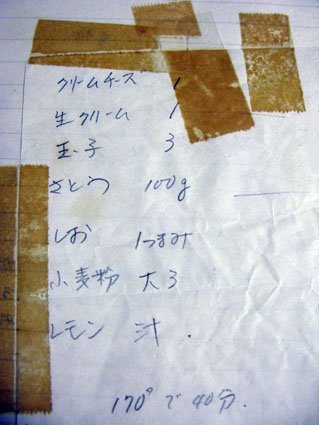 クリームチーズ 1
生クリーム 1
玉子 3
さとう 100g
しお 1つまみ
小麦粉 大3
レモン 汁.
170°で40分.